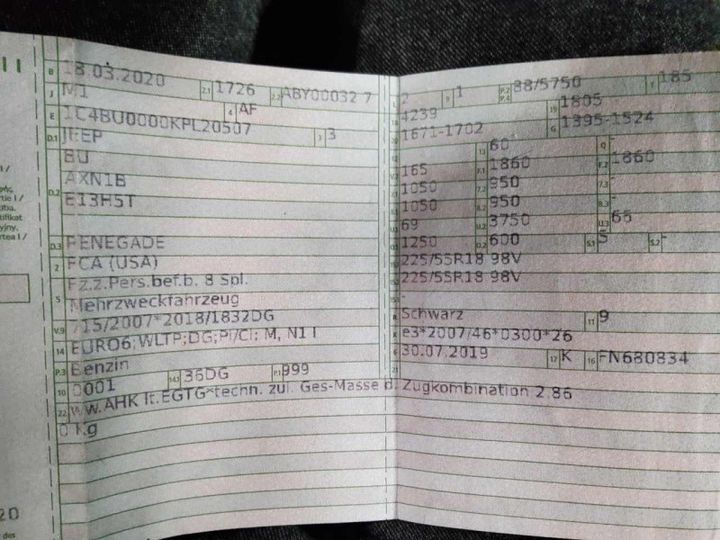 II
B 18.03.2020 2.1 1726 2.2 ABY00032 7
J M1 4 AF
E 1C4BU0000KPL20507 3 3
D.1 JEEP
BU
D.2 AXN1B
E13H5T
D.3 RENEGADE
2 FCA (USA)
5 Fz.z.Pers.bef.b. 8 Spl.
Mehrzweckfahrzeug
V.9 715/2007*2018/1832DG
14 EURO6;WLTP;DG;PI/CI; M, N1 I
P.3 Benzin
10 0001 14.1 36DG P.1 999
22 WW.AHK lt.EGTG*techn. zul. Ges-Masse d. Zugkombination 2.86
0 Kg
L 2 9 1 P.2 P.4 88/5750 T 185
4239 19 1805
20 1671-1702 G 1395-1524
13 60 Q -
V.7 165 F.1 1860 F.2 1860
1050 7.2 950 7.3 -
1050 8.2 950 8.3 -
U.1 69 U.2 3750 U.3 66
O.1 1250 O.2 600 S.1 5 S.2 -
225/55R18 98V
225/55R18 98V
-
R Schwarz 11 9
K e3*2007/46*0300*26
6 30.07.2019 17 K 16 FN680834
21
20
des